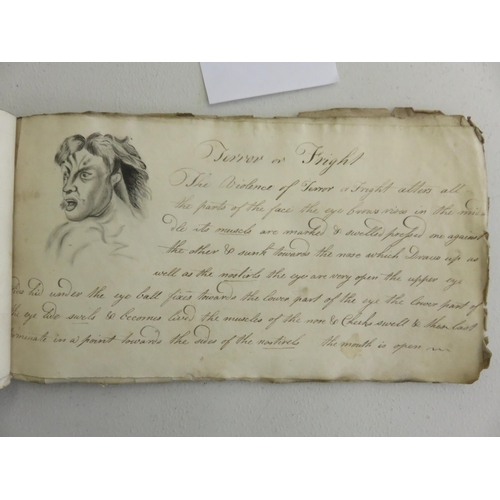 Terror or Fright
The Violence of Terror or Fright alters all
the parts of the face the eye brows rises in the mid
dle its muscle are marked & swelled pressed one against
the other & sunk towards the nose which Draws up as
well as the nostrils the eye are very open the upper eye
lid hid under the eye ball fixis towards the lower part of the eye the lower part of
eye lid swels & becomes livid the muscles of the nose & Cheeks swell & these last
in a point towards the sides of the nostrils the mouth is open